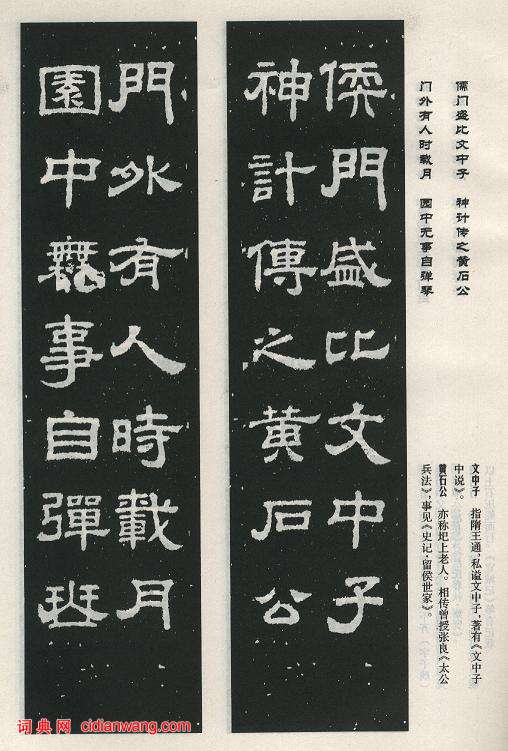 儒门盛比文中子　神计传之黄石公
门外有人时载月　园中无事自弹琴
文中子　指隋王通，私谥文中子，著有《文中子
中说》。
黄石公　亦称圯上老人。相传曾授张良《太公
兵法》，事见《史记·留侯世家》。
儒門盛比文中子
神計傳之黄石公
門外有人時載月
園中無事自彈琴
词典网 cidianwang.com